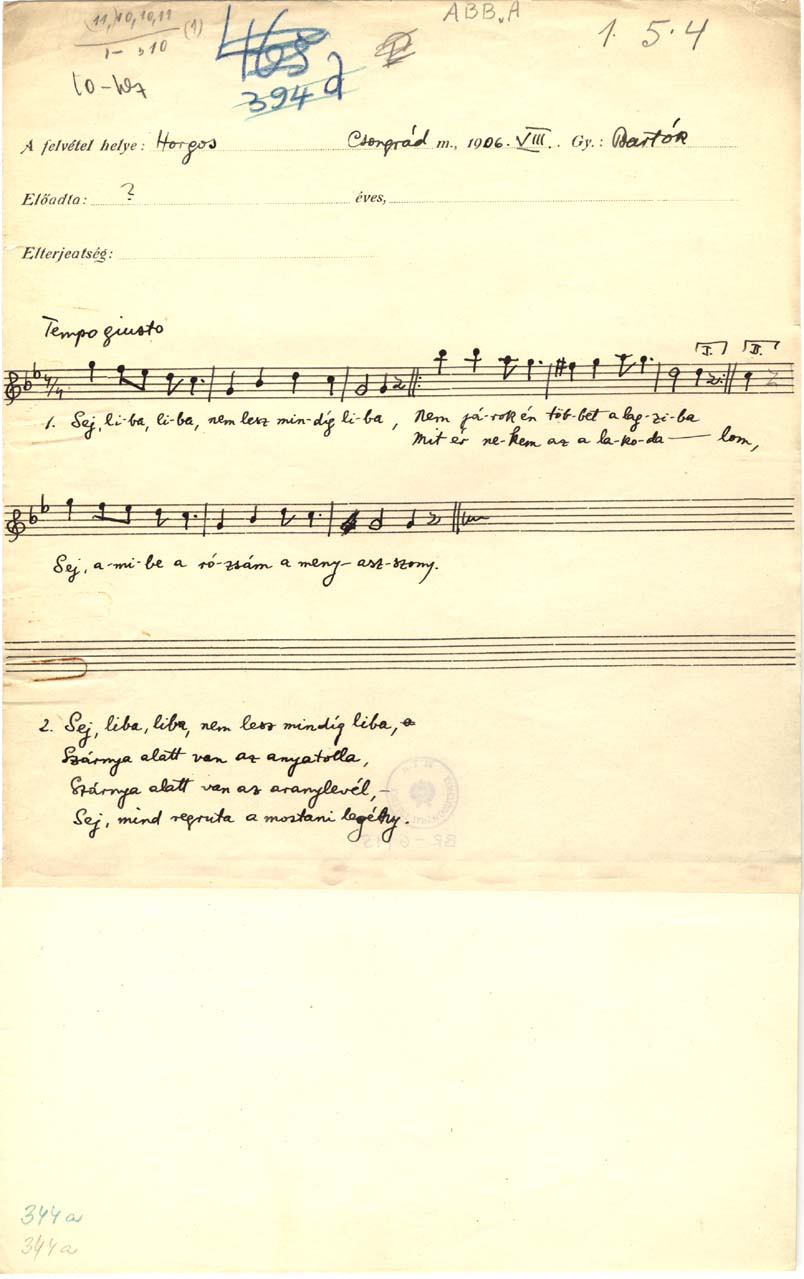 (11,)10,10,11 (1)
ABB.A
1. 5. 4
468
394 a
A felvétel helye: Horgos Csongrád m., 1906. VIII. Gy.: Bartók
Előadta: ? éves,
Elterjeatség:
Tempo giusto
I. II.
1. Sej, li-ba, li-ba, nem lesz min-díg li-ba, Nem já-rok én töb-bet a lag-zi-ba
Mit ér ne-kem az a la-ko-da— lom,
Sej, a-mi-be a ró-zsám a meny-asz-szony.
2. Sej, liba, liba, nem lesz mindíg liba,
Szárnya alatt van az anyatolla,
Szárnya alatt van az aranylevél,-
Sej, mind regruta a mostani legény.
344a
344a